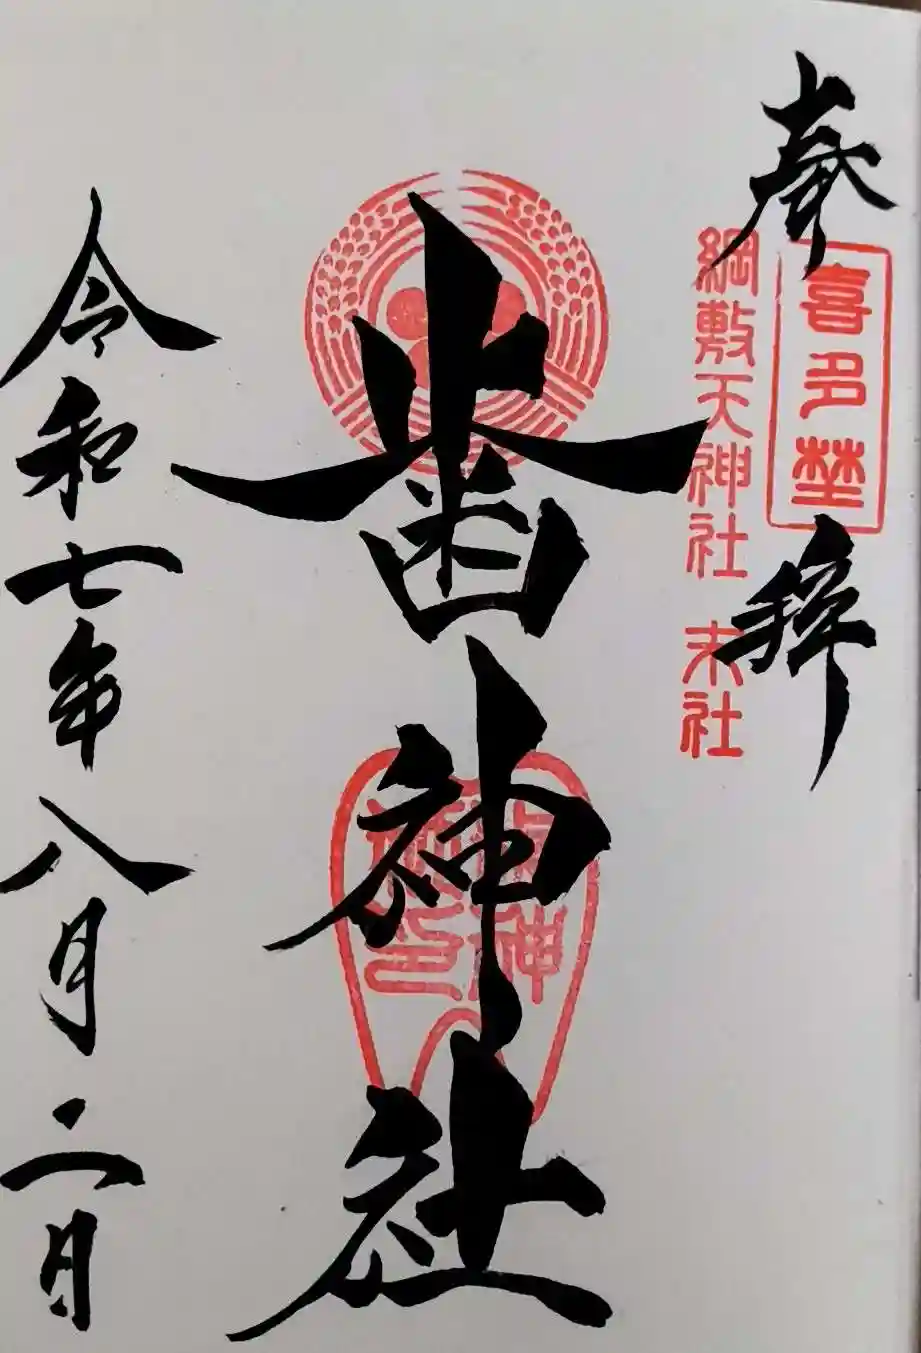 奉拝
喜多埜
綱敷天神社 末社
歯神社
齒神
社印
令和七年八月二日